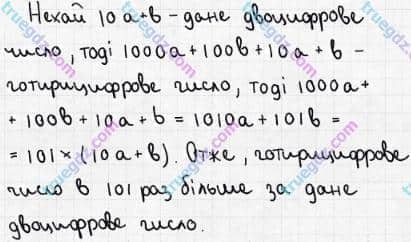 Нехай 10a+b – дане двоцифрове
число, тоді 1000a+100b+10a+b –
чотирицифрове число, тоді 1000a+
+100b+10a+b = 1010a+101b =
= 101×(10a+b). Отже, чотирицифрове
число в 101 раз більше за дане
двоцифрове число.
truegdz.com